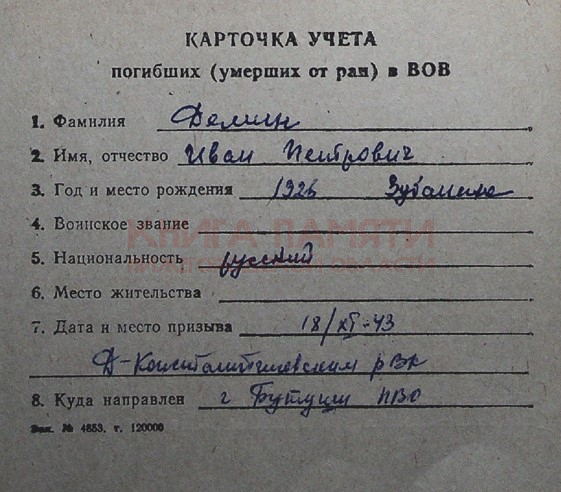 КАРТОЧКА УЧЕТА
погибших (умерших от ран) в ВОВ
1. Фамилия Демин
2. Имя, отчество Иван Петрович
3. Год и место рождения 1926
4. Воинское звание
КНИГА ПАМЯТИ
5. Национальность русский
6. Место жительства
7. Дата и место призыва 18/XI-43
рВК
8. Куда направлен г
Зак. № 4883, т. 120000